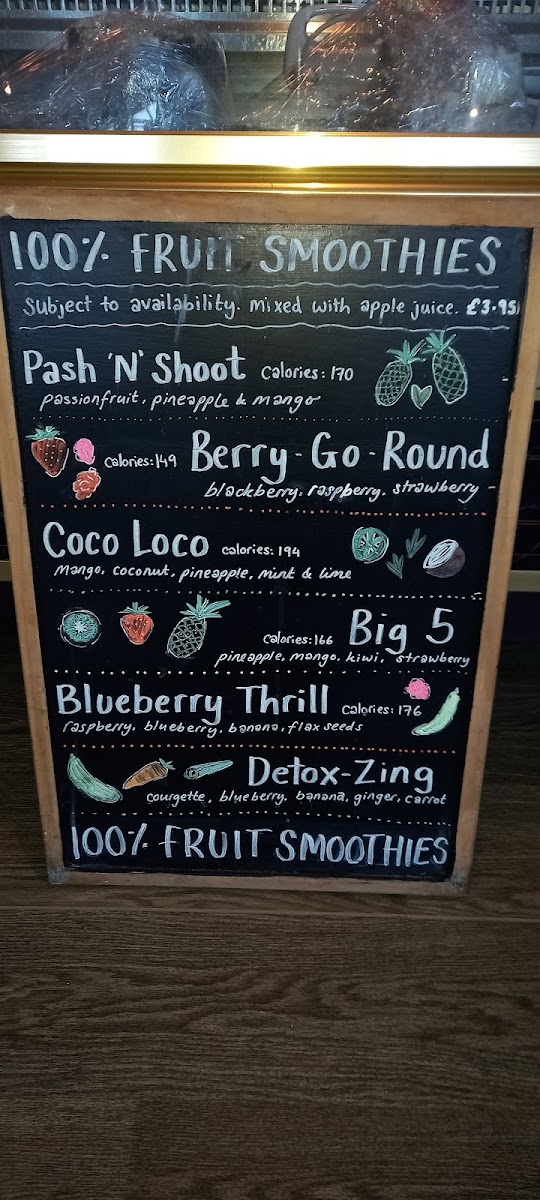 100% FRUIT SMOOTHIES
Subject to availability. Mixed with apple juice. £3.95
Pash 'N' Shoot Calories: 170
passionfruit, pineapple & mango
Calories: 149 Berry-Go-Round
blackberry, raspberry, strawberry
Coco Loco calories: 194
Mango, coconut, pineapple, mint & lime
Calories: 166 Big 5
pineapple, mango, kiwi, strawberry
Blueberry Thrill Calories: 176
raspberry, blueberry, banana, flax seeds
Detox-Zing
courgette, blueberry, banana, ginger, carrot
100% FRUIT SMOOTHIES